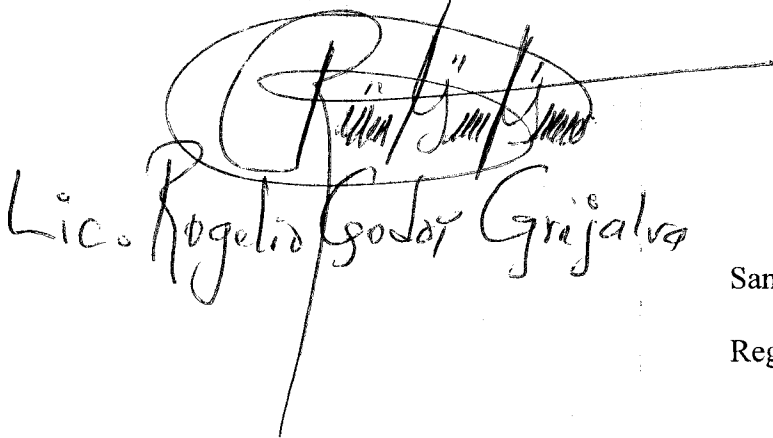 Lic. Rogelio Godoy Grijalva
San
Reg